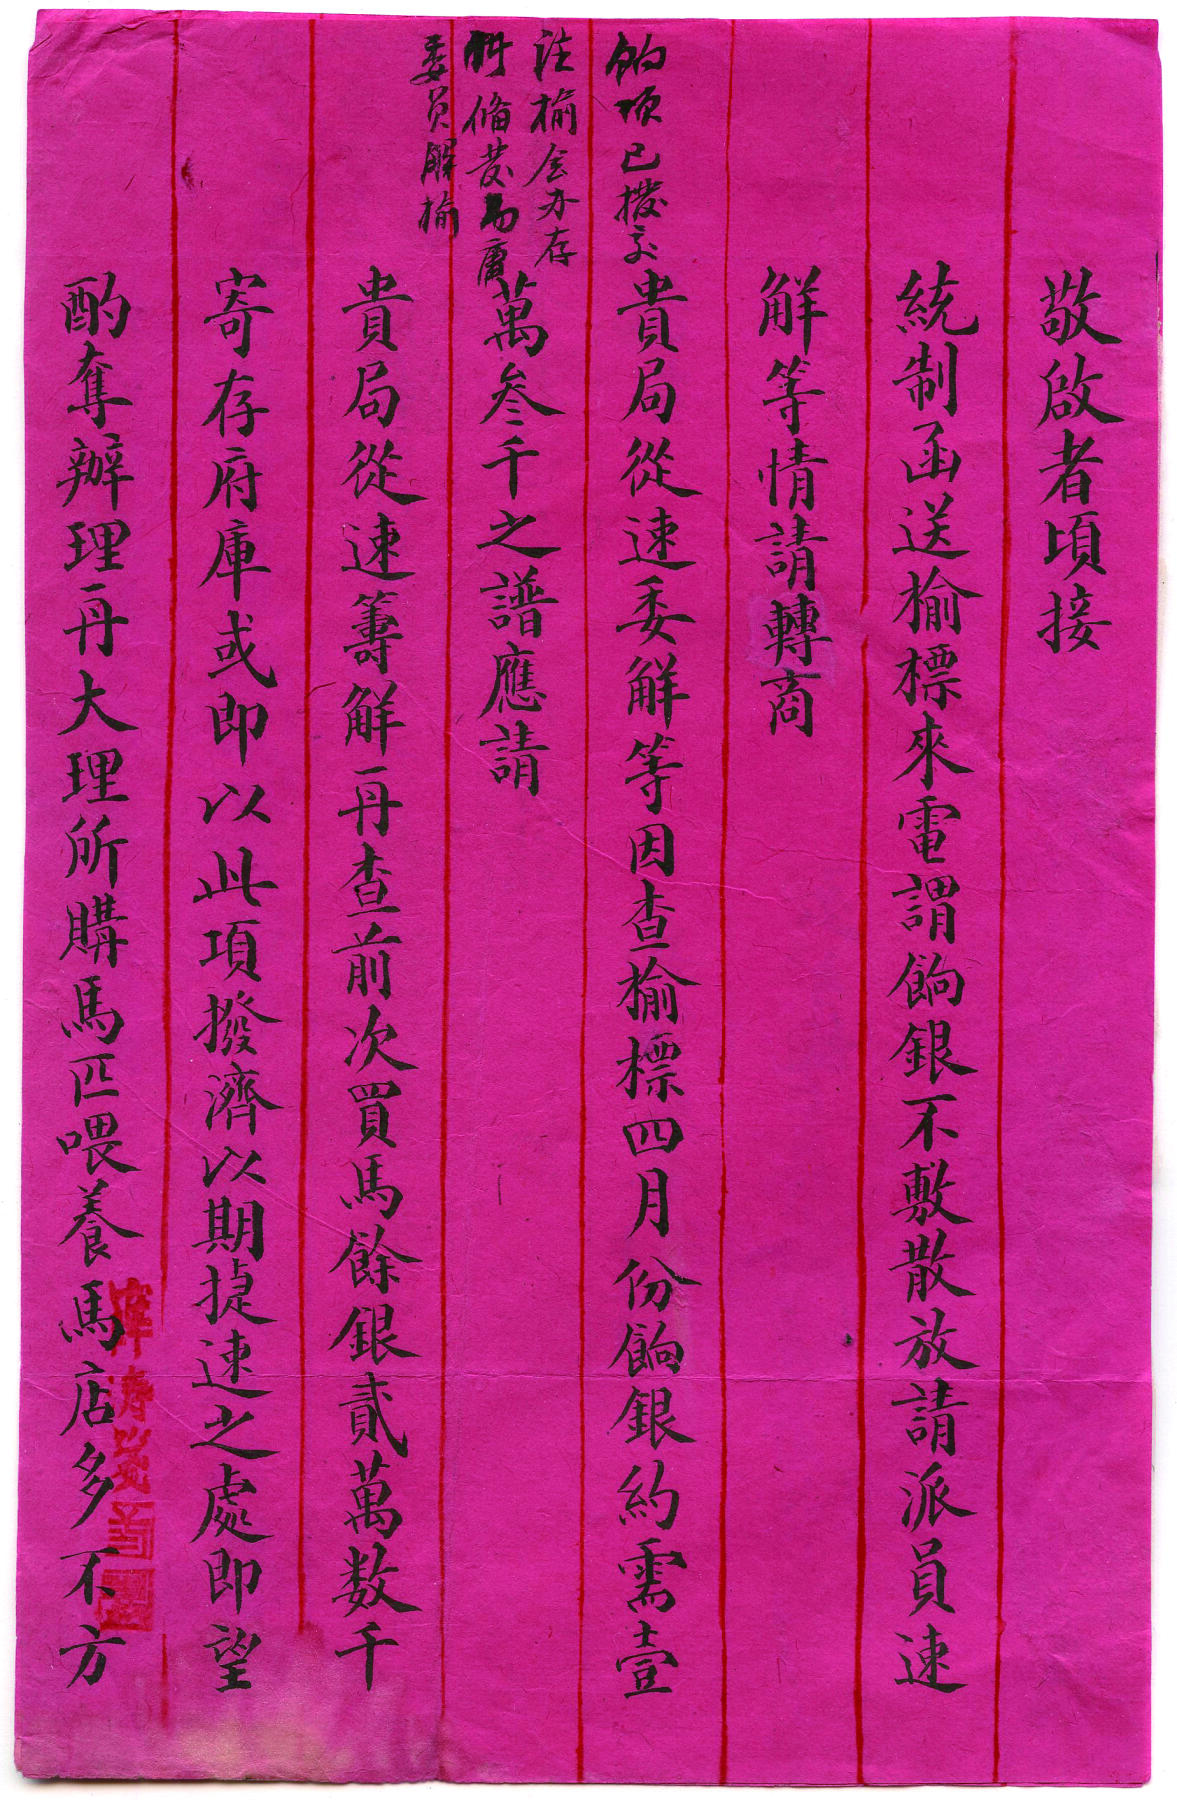 敬啟者頃接
統制函送榆標來電謂餉銀不敷散放請派員速
解等情請轉商
貴局從速委解等因查榆標四月份餉銀約需壹
萬叁千之譜應請
貴局從速籌解再查前次買馬餘銀貳萬数千
寄存府庫或即以此項撥濟以期捷速之處即望
酌奪辦理再大理所購馬匹喂養馬店多不方
餉項已撥交
榆
備發
委員解榆